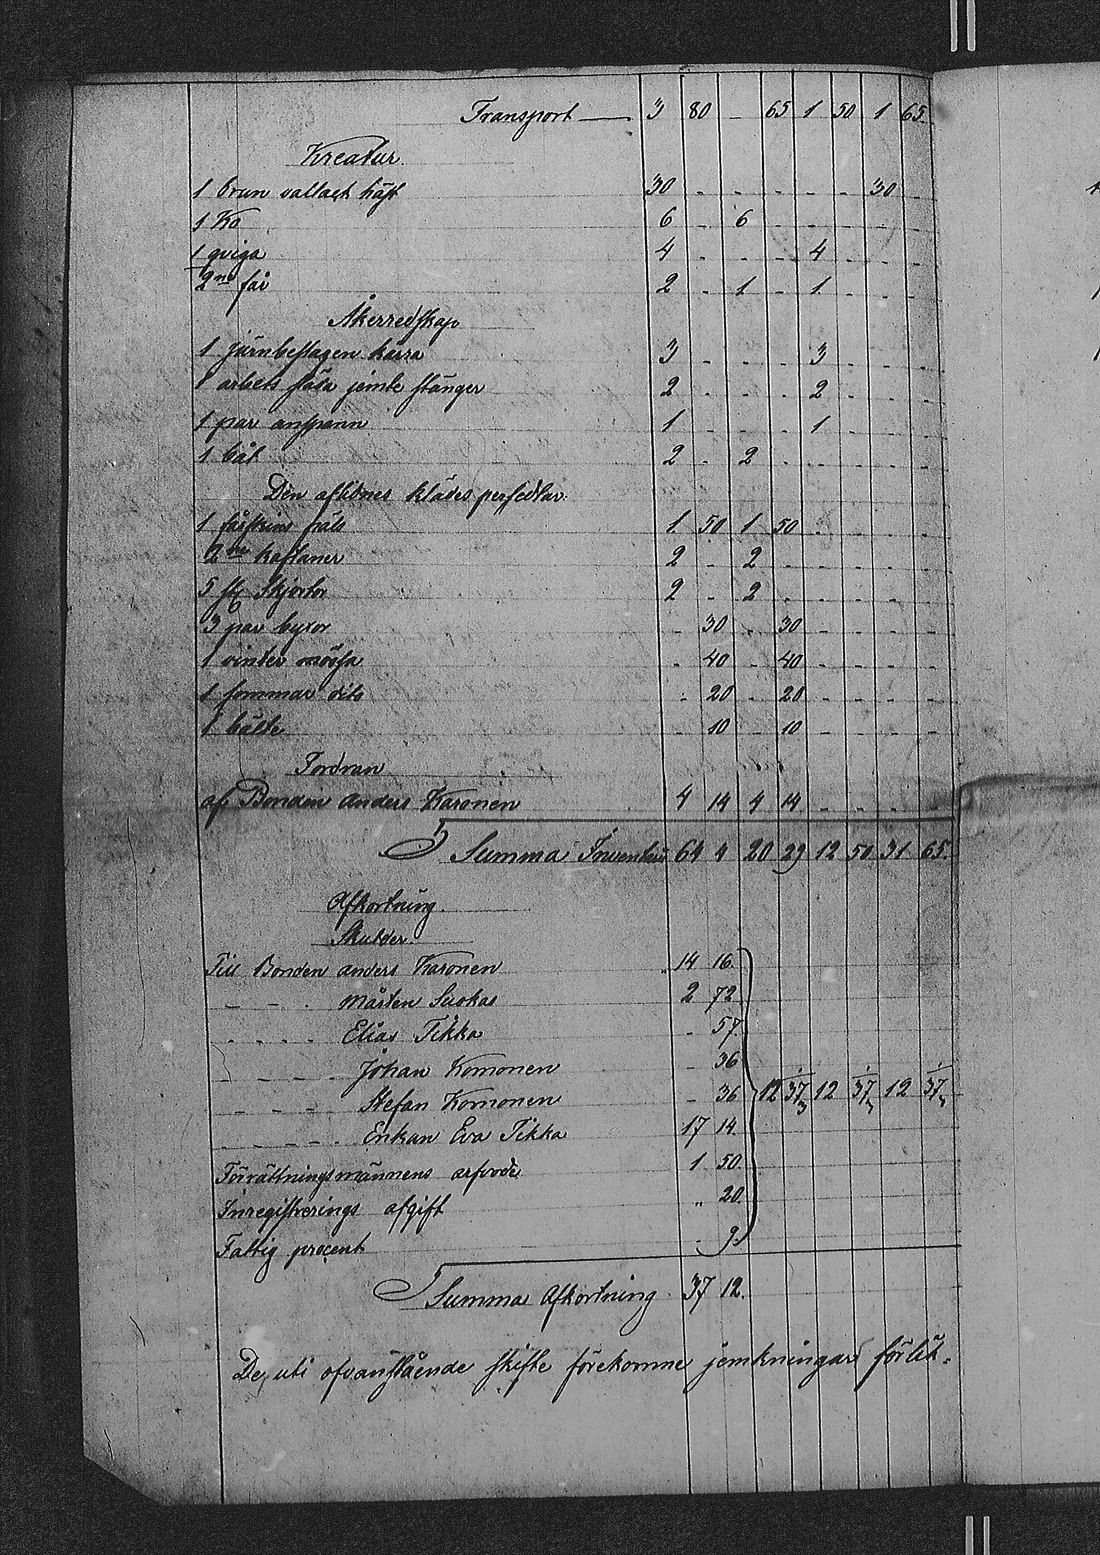 Transport — 3 80 - 65 1 50 1 65.
Kreatur.
1 brun vallack häst 30 - - - - - 30
1 Ko 6 - 6 - - - - -
1 qviga 4 - - - 4 - - -
2ne får 2 - 1 - 1 - - -
Åkerredskap
1 järnbeslagen kärra 3 - - - 3 - - -
1 arbets släda jemte stänger 2 - - - 2 - - -
1 par anspann 1 - - - 1 - - -
1 båt 2 - 2 - - - - -
Den aflidnes klädes persedlar.
1 fårskins päls 1 50 1 50 - - - -
2ne kaftaner 2 - 2 - - - - -
5 st Skjortor 2 - 2 - - - - -
3 par byxor - 30 - 30 - - - -
1 vinter mössa - 40 - 40 - - - -
1 sommar dito - 20 - 20 - - - -
1 bälte - 10 - 10 - - - -
Fordran
af Bonden Anders Karonen 4 14 4 14 - - - -
Summa Inventarii 64 4 20 29 12 50 31 65.
Afkortning.
Skulder.
Till Bonden Anders Karonen 14 16.
- - - Mårten Suokas 2 72
- - - - Elias Tikka - 57.
- - - - Johan Komonen - 36
- - - - Stefan Komonen - 36 12 37 1/3 12 37 1/3 12 37 1/3
- - - - Enkan Eva Tikka 17 14.
Förrättningsmännens arfvode 1 50.
Inregistrerings afgift " 20.
Fattig procent - 9.
Summa Afkortning 37 12.
De, uti ofvanstående skifte förekomne jemkningar förlik-